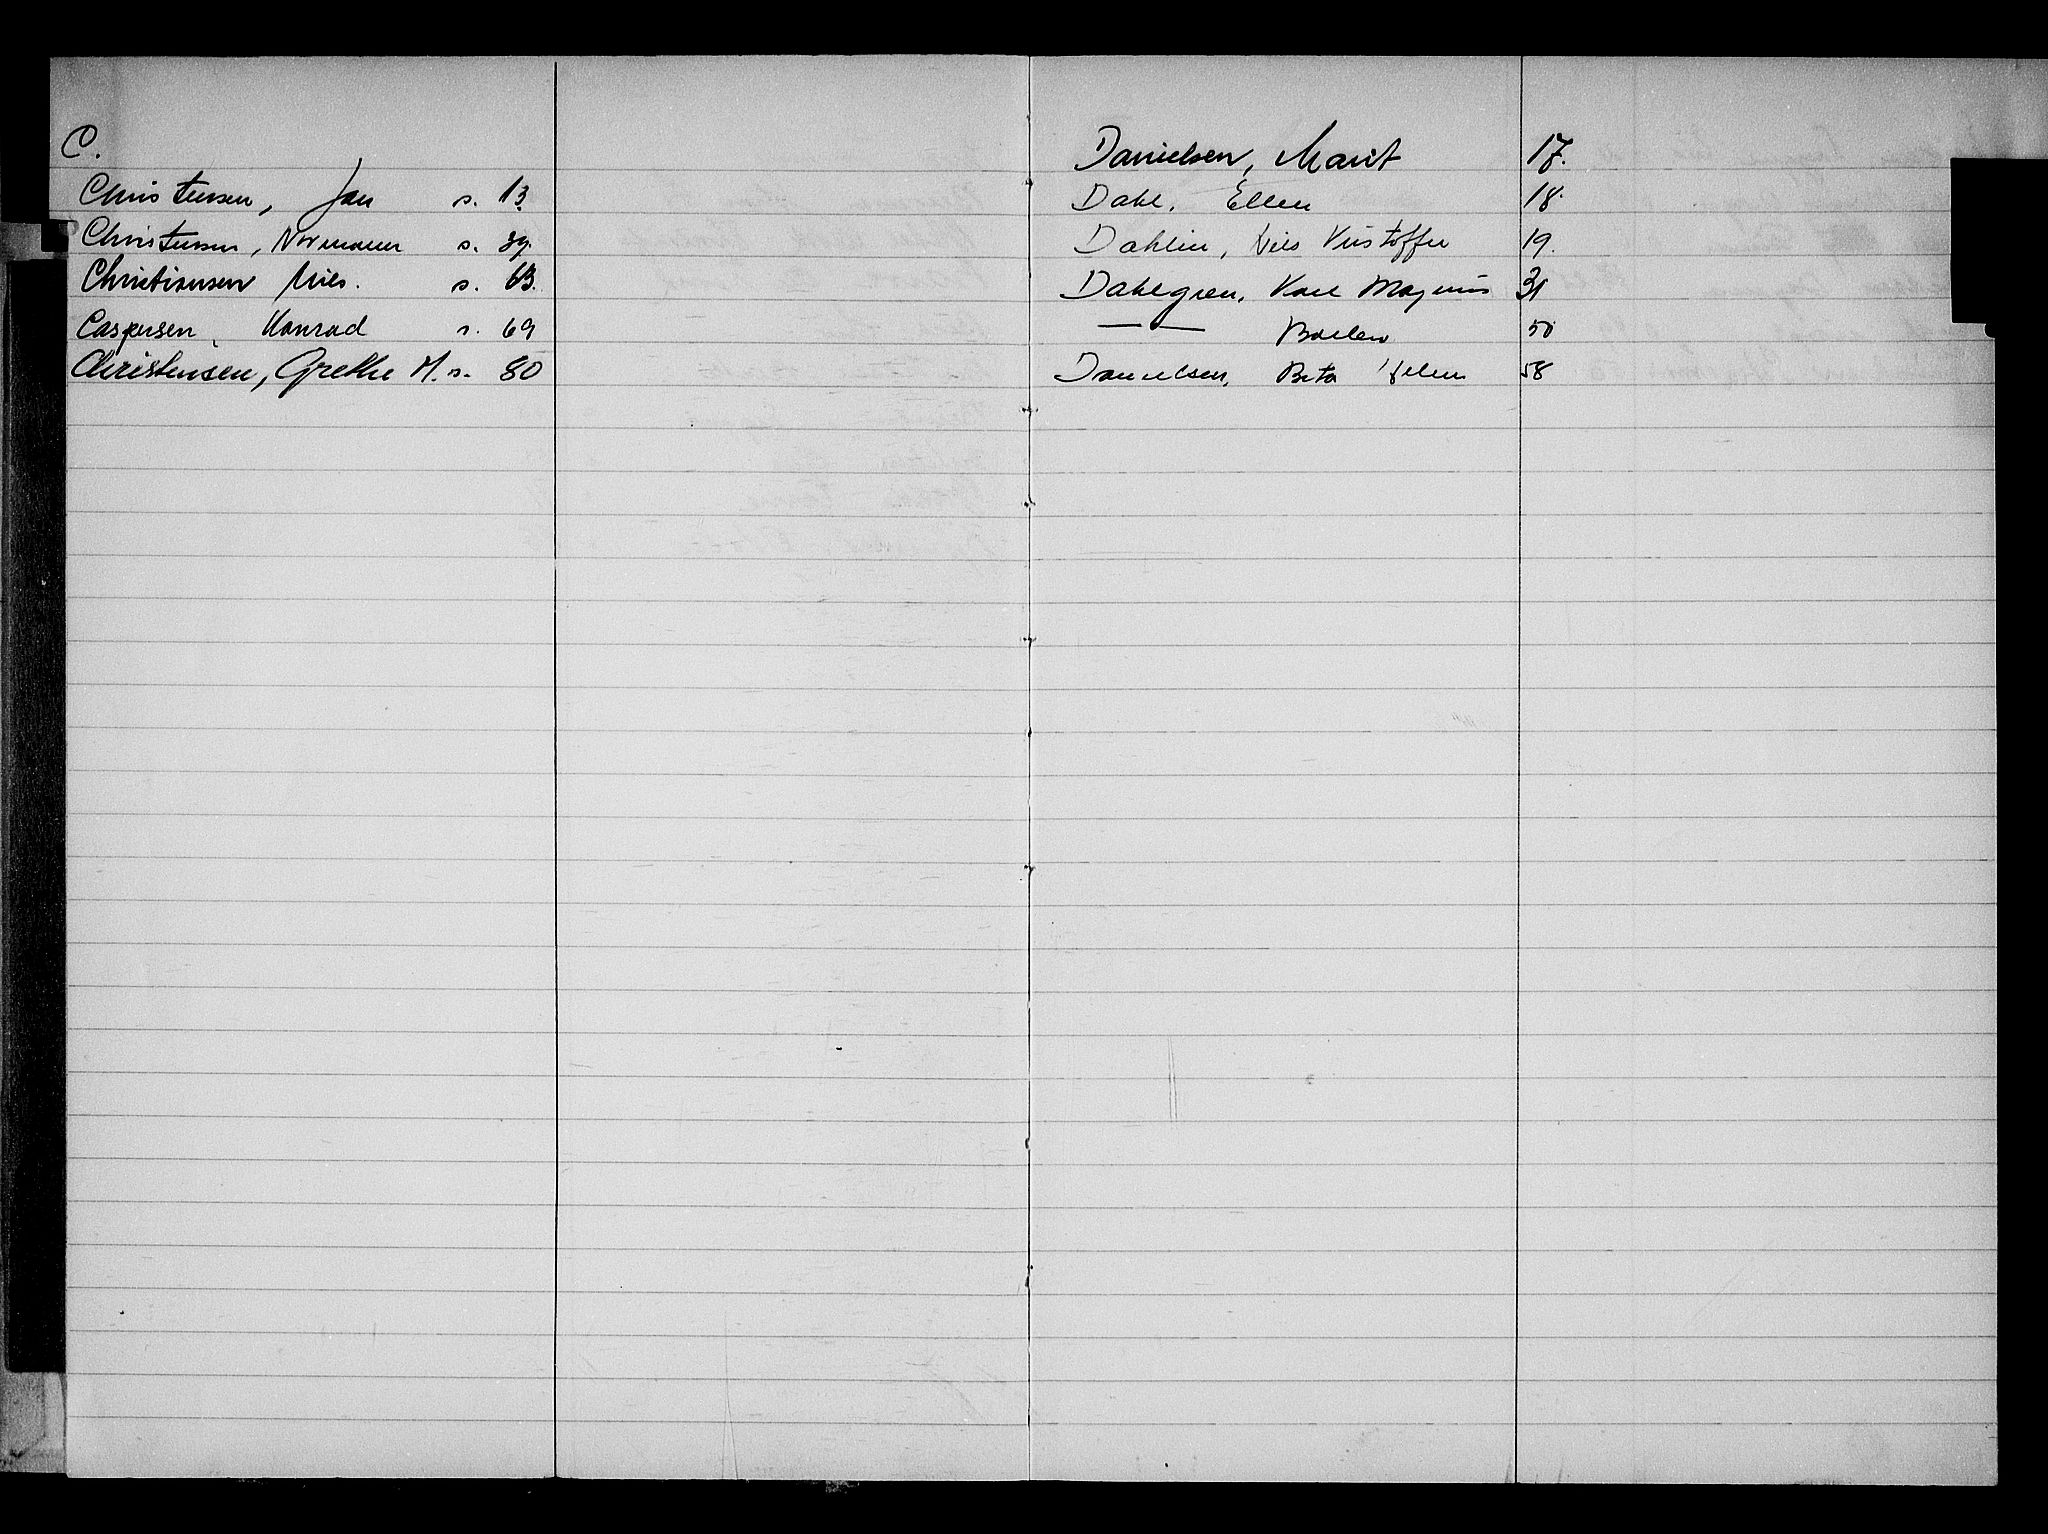 C.
Christensen, Jan s. 13.
Christensen, Normann s. 39.
Christiansen Nils. s. 63.
Caspersen, Konrad s. 69
Christensen, Grethe M. s. 80
Danielsen, Marit 17.
Dahl, Ellen 18.
Dahlin, Nils Kristoffer 19.
Dahlgren, Karl Magnus 31
— " — 50
Danielsen, Helen 58